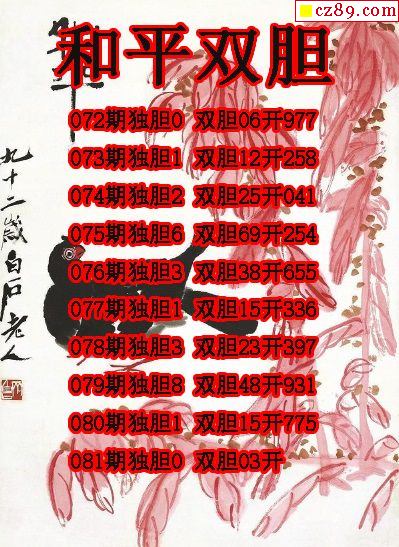 cz89.com
和平双胆
072期独胆0 双胆06开977
073期独胆1 双胆12开258
074期独胆2 双胆25开041
075期独胆6 双胆69开254
076期独胆3 双胆38开655
077期独胆1 双胆15开336
078期独胆3 双胆23开397
079期独胆8 双胆48开931
080期独胆1 双胆15开775
081期独胆0 双胆03开
九十二岁白石老人